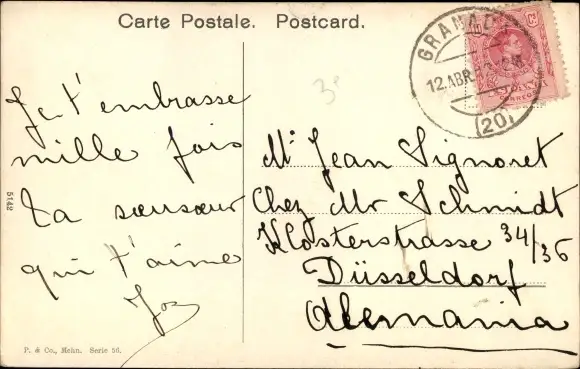 Carte Postale. Postcard.
GRANAD
12.ABR
(20)
3e
Je t'embrasse
mille fois
Ta soeusoeur
qui t'aime
5142
Mr. Jean Signoret
Chez Mr Schmidt
Klosterstrasse 34/36
Düsseldorf
Alemania
P. & Co., Mchn. Serie 56.